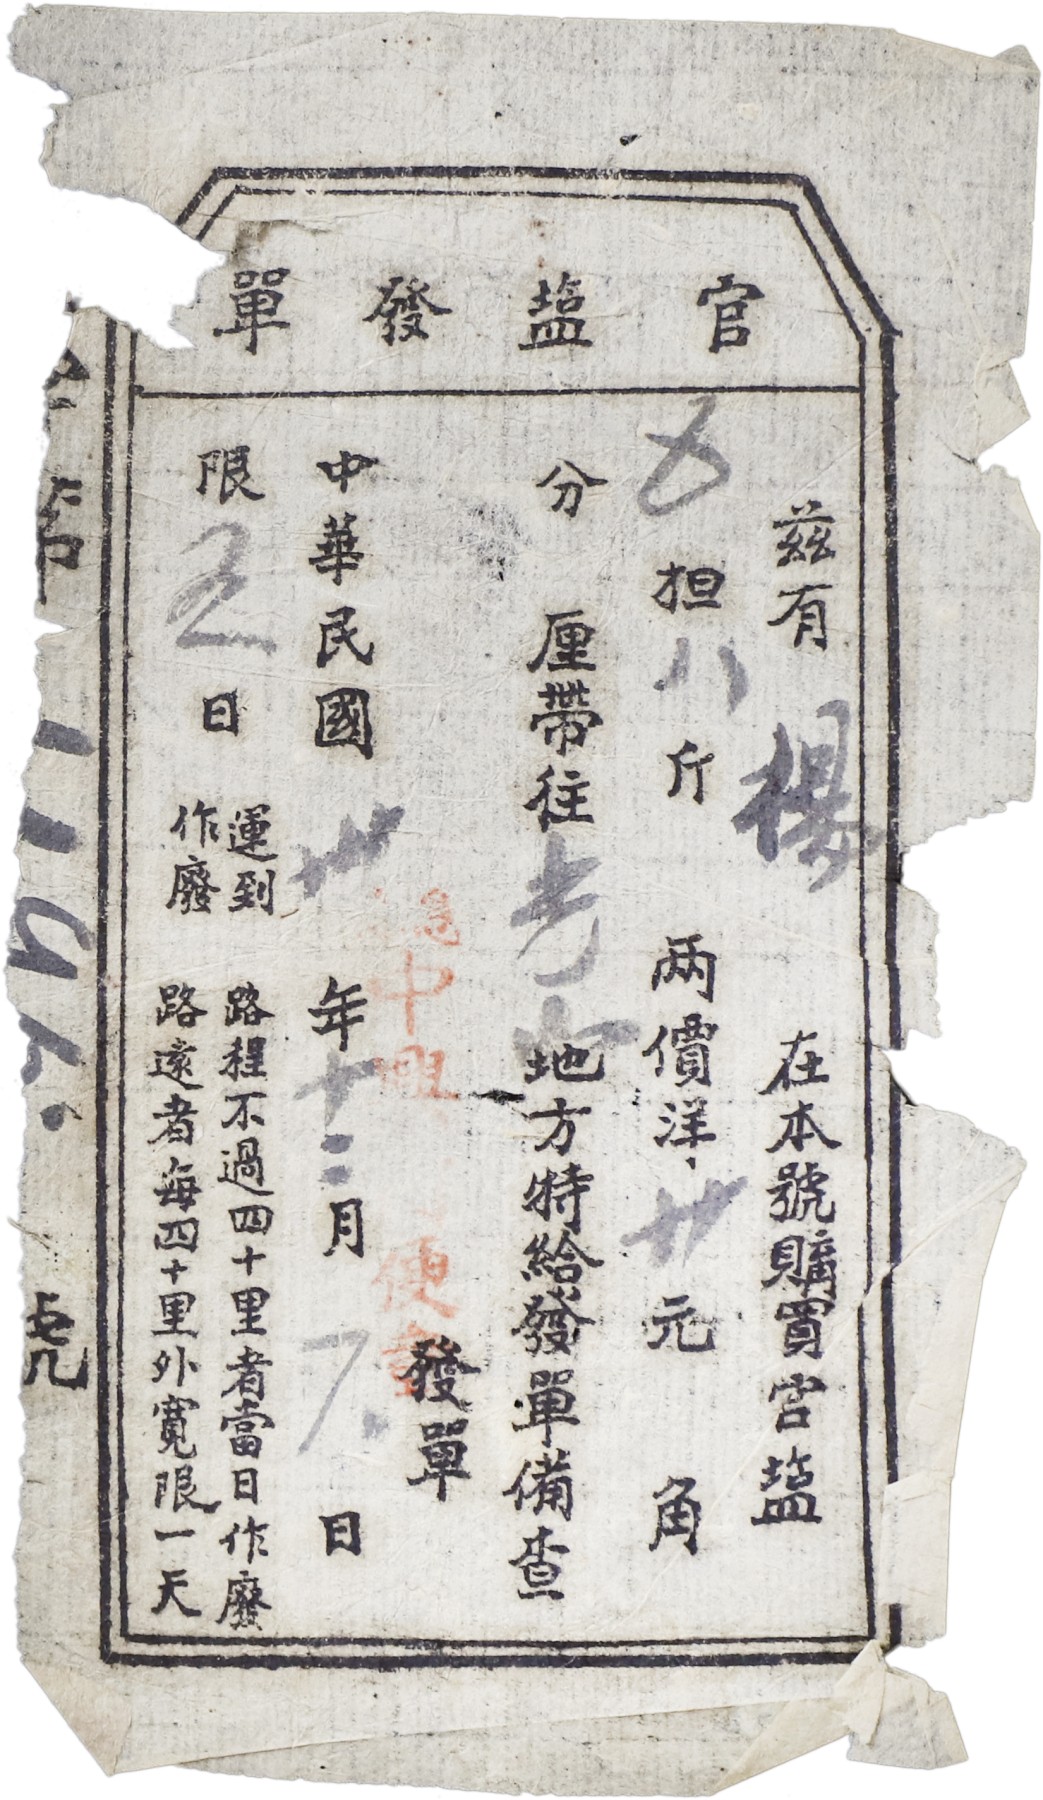 官塩發單
茲有 楊 在本號購買官塩
五担八斤 兩價洋廿元 角
分 厘帶往 地方特給發單備查
中興 便 發單
中華民國卅年十二月 日
限 日 運到作廢 路程不過四十里者當日作廢
路遠者每四十里外寬限一天
號